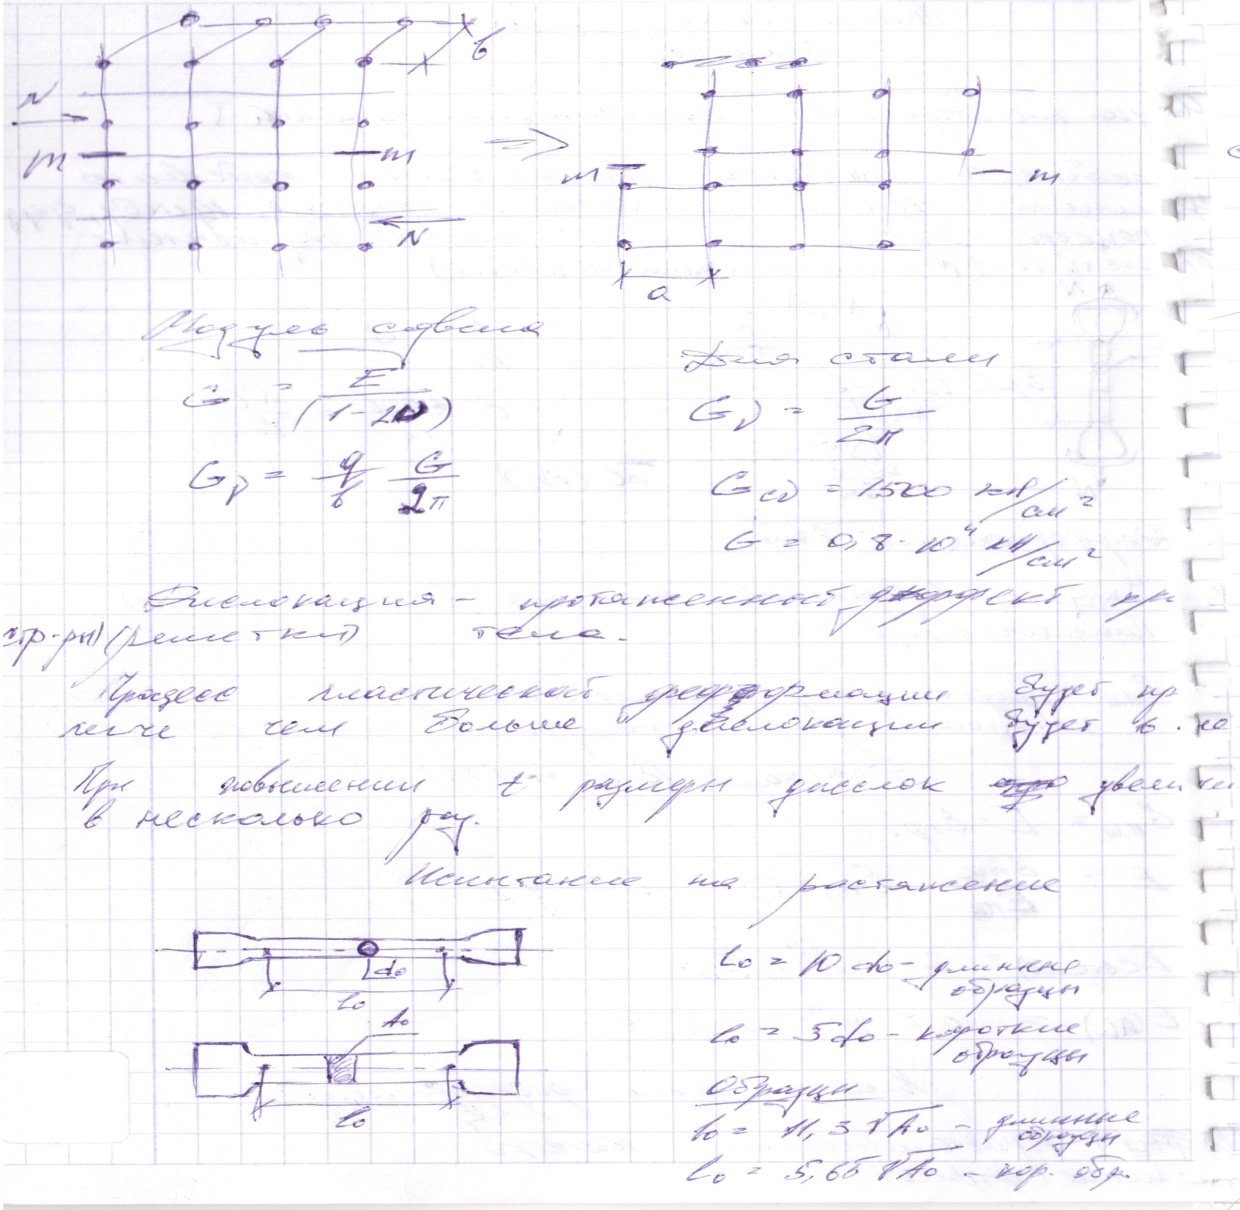 в
N
m
m
N
m
m
a
Модуль сдвига
G = E / (1-2ν)
Для стали
G = G / 2π
G = a/в G/2π
= 1500 кН/см²
G = 0,8·10⁴ кН/см²
Дислокация – протяженный дефект пр
стр-ры) (решетки) тела.
Процесс пластической деформации будет пр
легче чем больше дислокации будет в не
При повышении t размеры дислок увеличи
в несколько раз.
Испытание на растяжение
d₀
l₀
l₀ = 10 d₀ – длинные
образцы
A₀
l₀ = 5d₀ – короткие
образцы
l₀
Образцы
l₀ = 11,3 √A₀ – длинные
образцы
l₀ = 5,65 √A₀ – кор. обр.